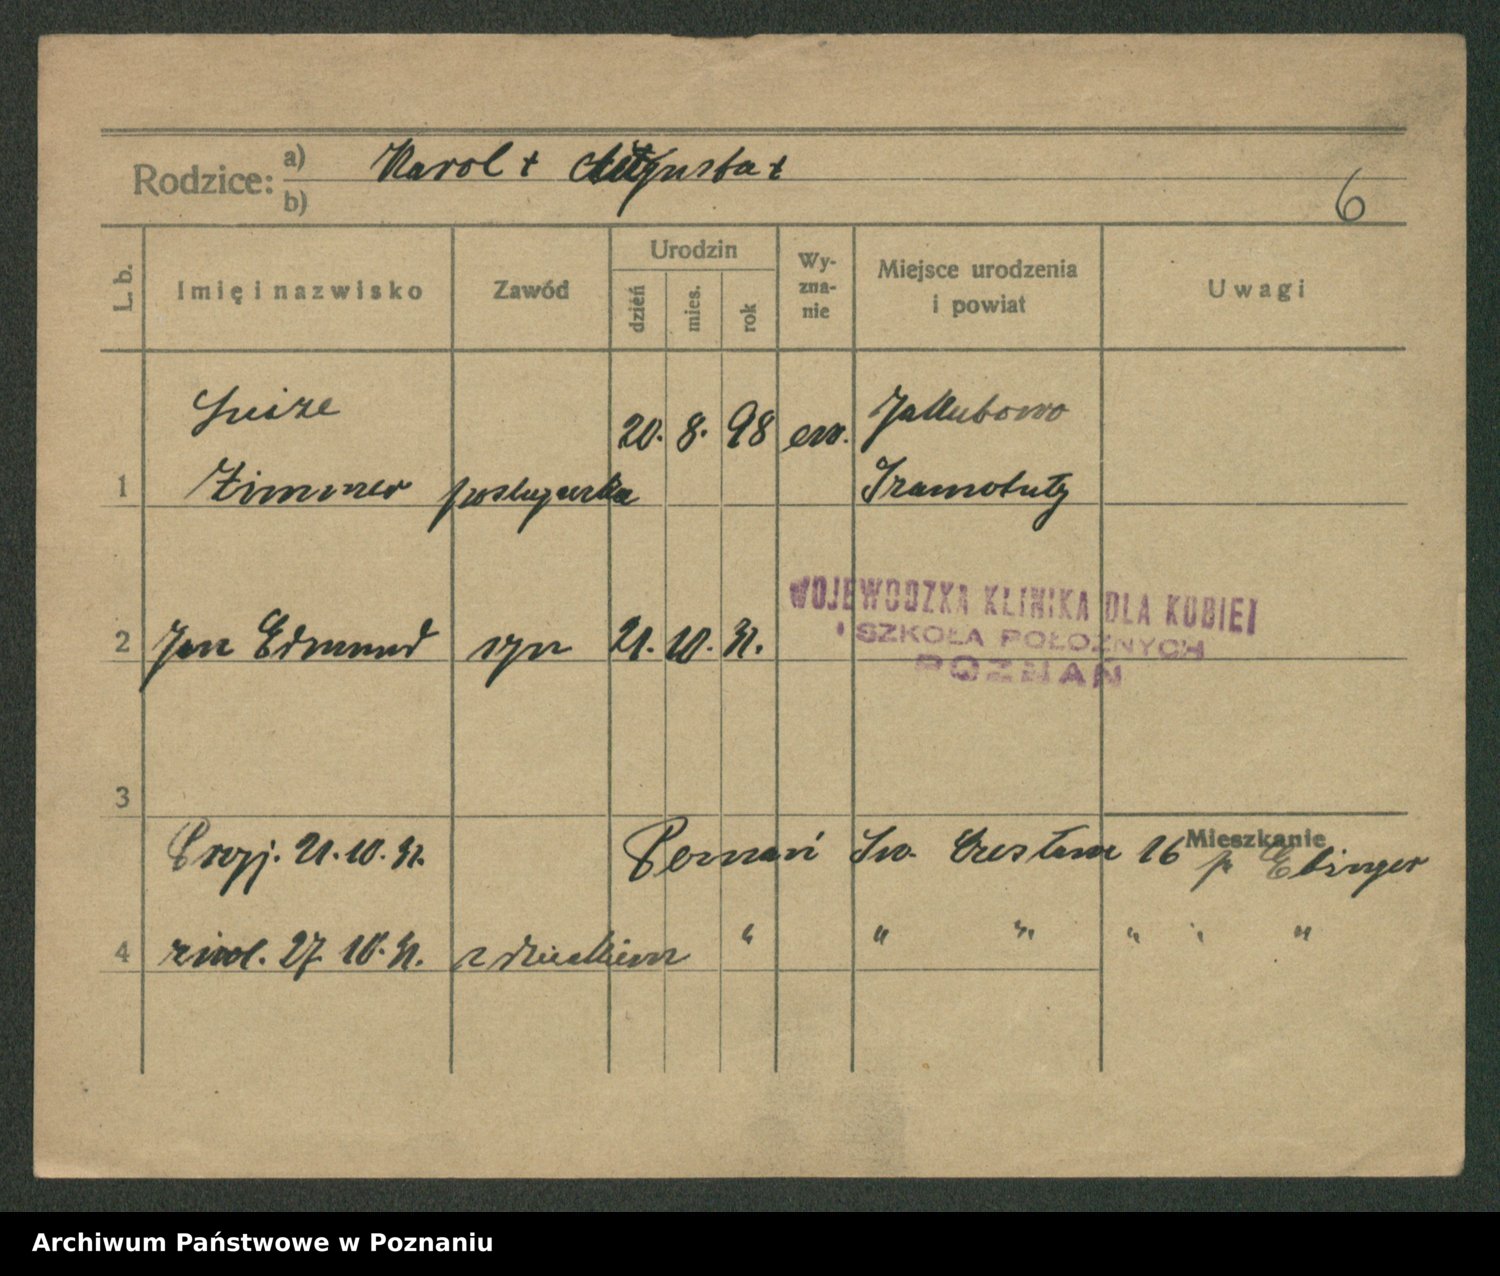 Rodzice: a) Karol + Augusta +
b)
6
L. b. Imię i nazwisko Zawód Urodzin dzień mies. rok Wy-zna-nie Miejsce urodzenia i powiat Uwagi
Luize 20. 8. 98 ew. Jakubowo
1 Zimmer posługaczka Szamotuły
WOJEWÓDZKA KLINIKA DLA KOBIET
I SZKOŁA POŁOŻNYCH
POZNAŃ
2 Jan Edmund syn 21. 10. 31.
3
Mieszkanie
Przyj. 21. 10. 31. Poznań Św. Czesława 16 p Ebinger
4 zwol. 27. 10. 31. z dzieckiem " " " " " "
Archiwum Państwowe w Poznaniu